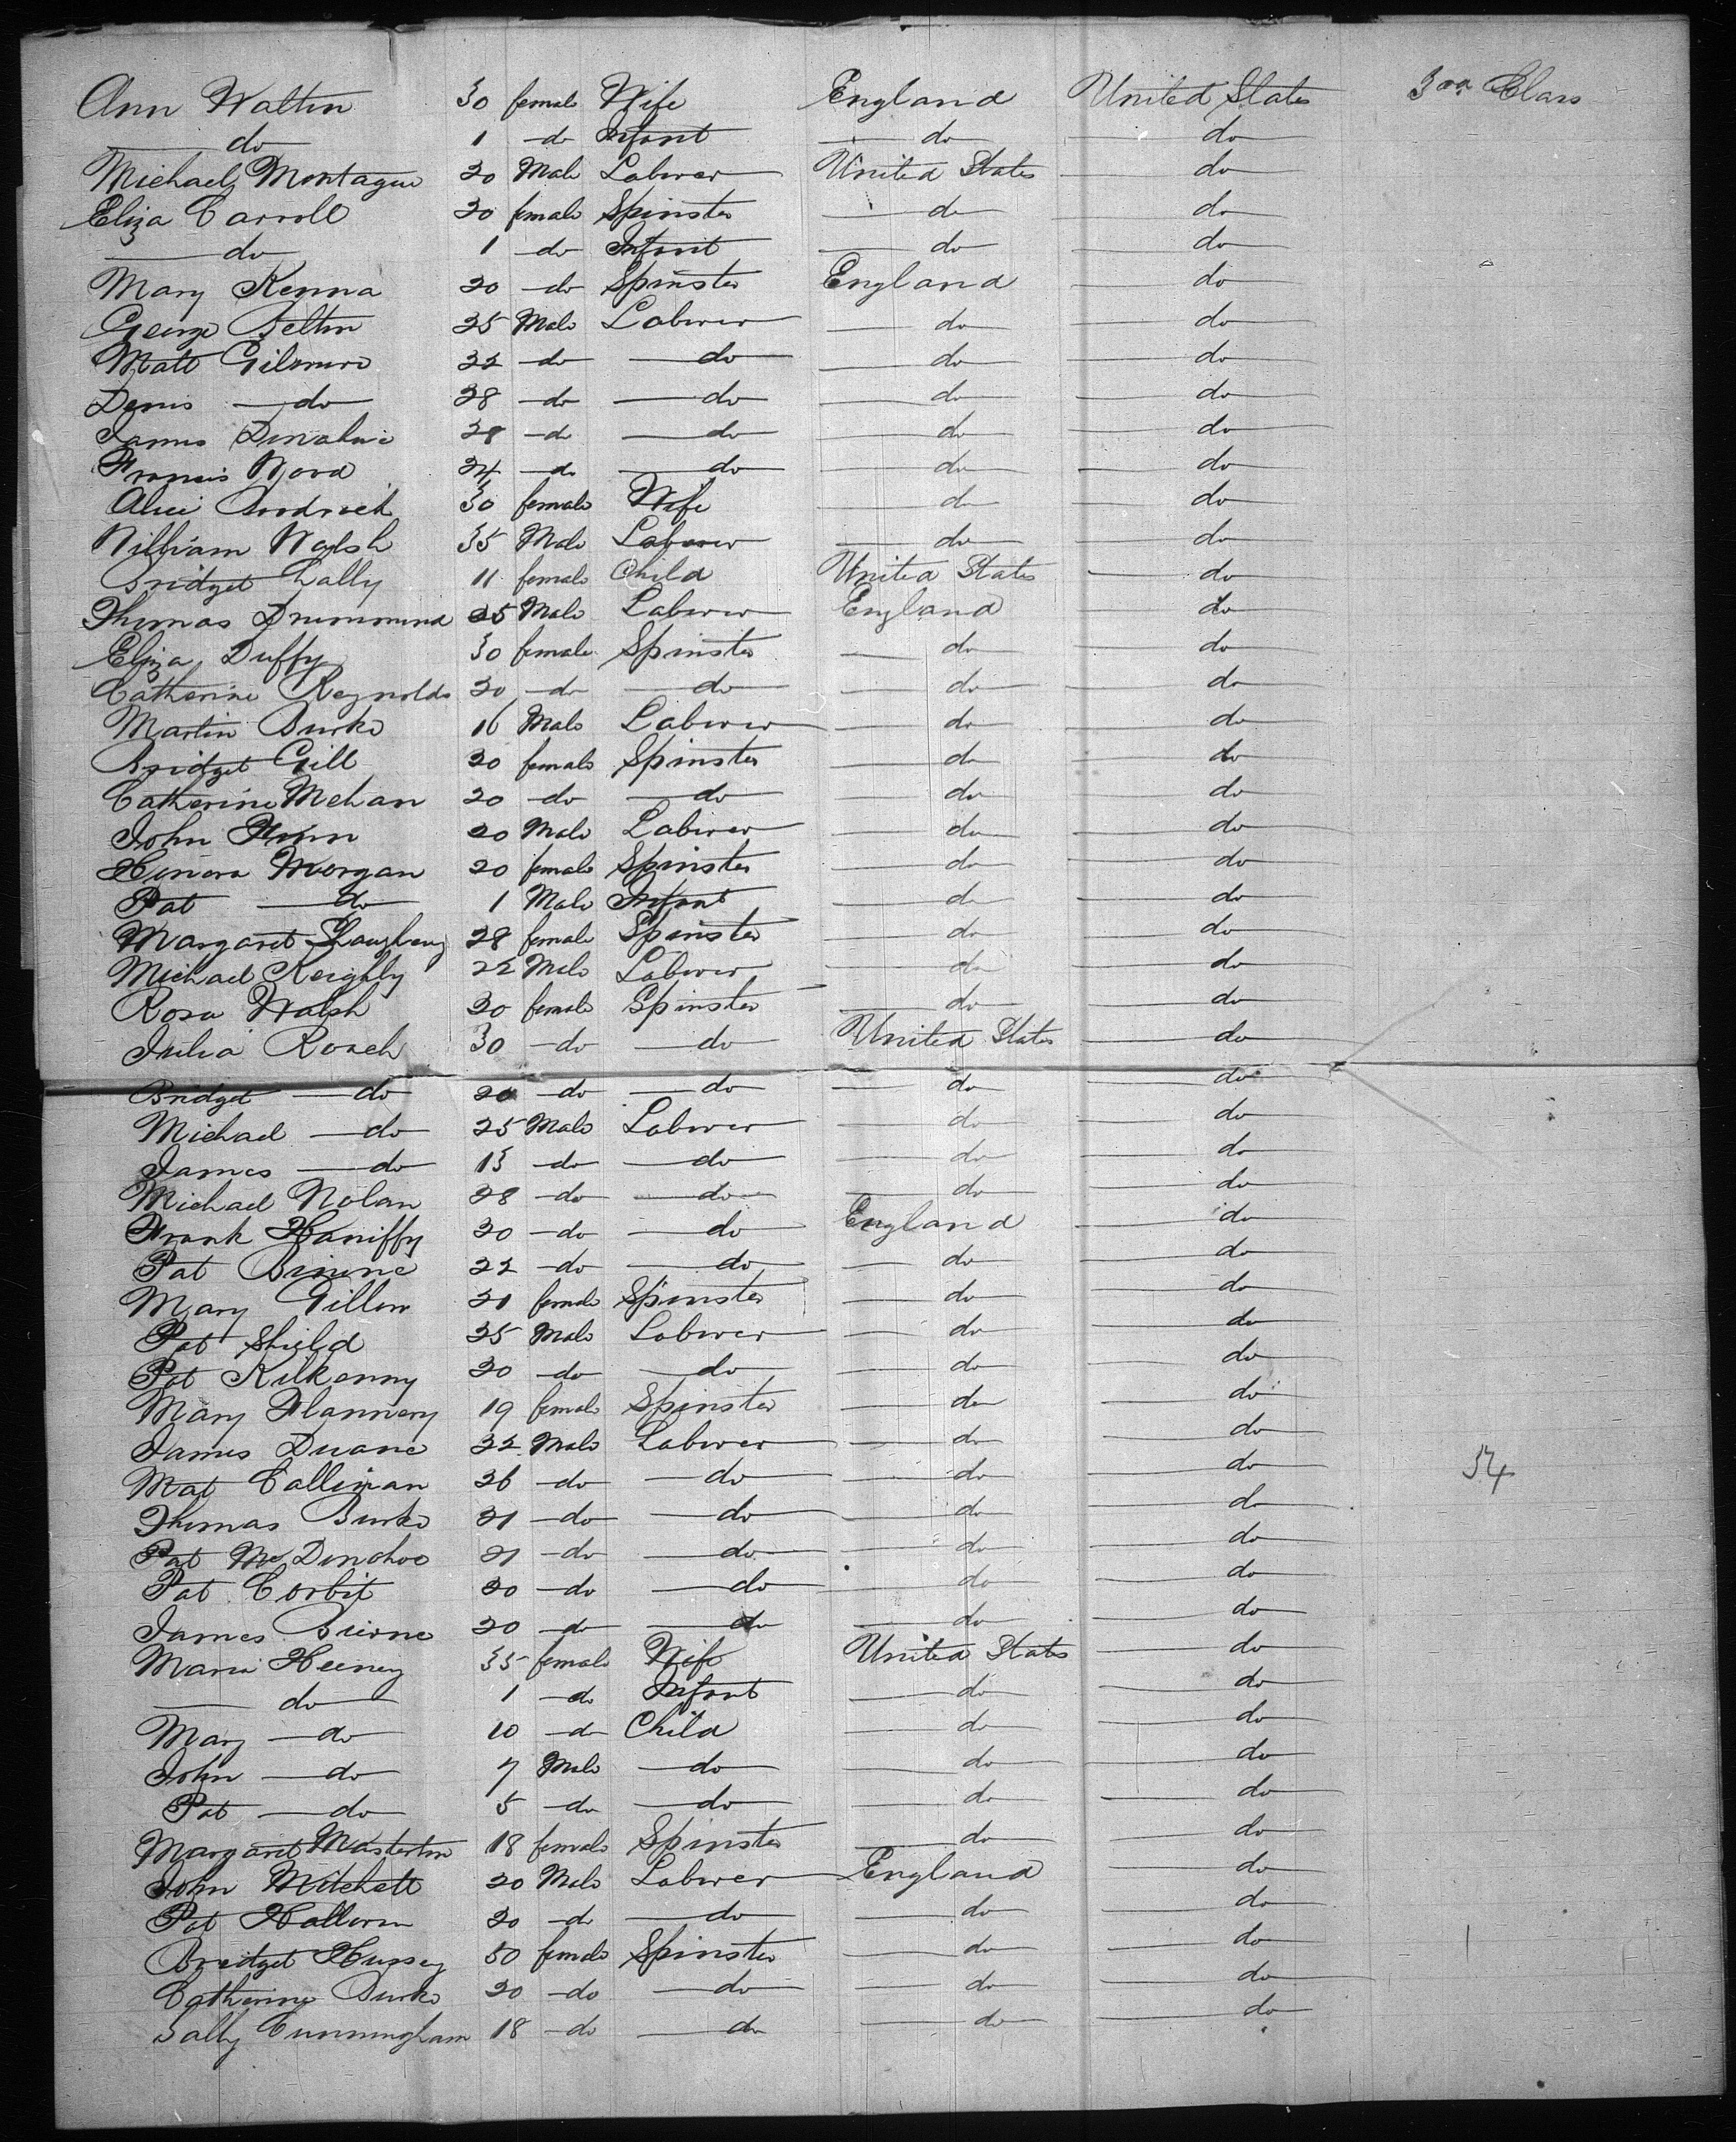 Ann Walton 30 female Wife England United States 3rd Class
do 1 do Infant do do
Michael Montague 20 Male Laborer United States do
Eliza Carroll 20 female Spinster do do
do 1 do Infant do do
Mary Kenna 20 do Spinster England do
George Felton 25 Male Laborer do do
Matt Gilmore 22 do do do do
Denis do 28 do do do do
James Donahue 28 do do do do
Francis Wood 24 do do do do
Alice 30 female Wife do do
William Walsh 35 Male Laborer do do
Bridget Lally 11 female Child United States do
Thomas Drummond 25 Male Laborer England do
Eliza Duffy 30 female Spinster do do
Catherine Reynolds 20 do do do do
Martin Burke 16 Male Laborer do do
Bridget Gill 20 female Spinster do do
Catherine Mehan 20 do do do do
John Finn 20 Male Laborer do do
Honora Morgan 20 female Spinster do do
Pat do 1 Male Infant do do
Margaret 28 female Spinster do do
Michael Keighly 22 Male Laborer do do
Rosa Walsh 20 female Spinster do do
Julia Roach 30 do do United States do
Bridget do 20 do do do do
Michael do 25 Male Laborer do do
James do 13 do do do do
Michael Nolan 28 do do do do
Frank Haniffy 20 do do England do
Pat 22 do do do do
Mary Gillon 21 female Spinster do do
Pat Shield 25 Male Laborer do do
Pat Kilkenny 20 do do do do
Mary Flannery 19 female Spinster do do
James Duane 22 Male Laborer do do
Mat Callinan 26 do do do do 54
Thomas Burke 21 do do do do
Pat McDonohoe 21 do do do do
Pat Corbit 20 do do do do
James Bierne 20 do do do do
Maria Heeney 35 female Wife United States do
do 1 do Infant do do
Mary do 10 do Child do do
John do 7 Male do do do
Pat do 5 do do do do
Margaret Masterton 18 female Spinster do do
John Mitchell 20 Male Laborer England do
Pat Halloran 20 do do do do
Bridget Hussey 50 female Spinster do do
Catherine Burke 20 do do do do
Sally Cunningham 18 do do do do